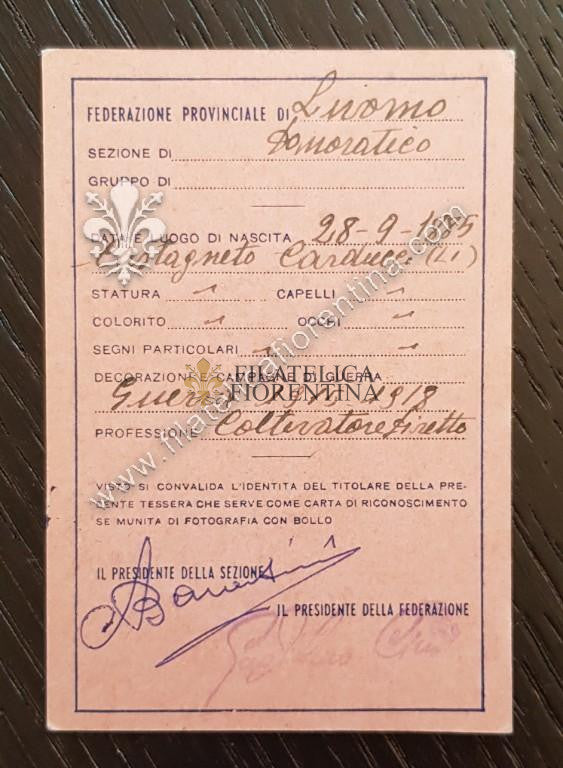 FEDERAZIONE PROVINCIALE DI Livorno
SEZIONE DI Donoratico
GRUPPO DI
DATA E LUOGO DI NASCITA 28-9-
Castagneto Carducci (Li)
STATURA CAPELLI
COLORITO OCCHI
SEGNI PARTICOLARI
DECORAZIONI E CAMPAGNE DI GUERRA
Guerra 1918
PROFESSIONE Coltivatore diretto
VISTO SI CONVALIDA L'IDENTITÀ DEL TITOLARE DELLA PRE-
ENTE TESSERA CHE SERVE COME CARTA DI RICONOSCIMENTO
SE MUNITA DI FOTOGRAFIA CON BOLLO
IL PRESIDENTE DELLA SEZIONE
IL PRESIDENTE DELLA FEDERAZIONE
FILATELICA
FIORENTINA
www.filatelicafiorentina.com